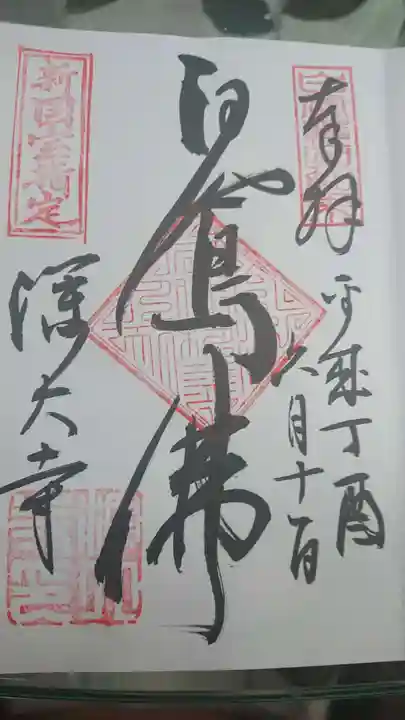 奉拝
平成丁酉
六月十一日
白鳳佛
新国宝指定
深大寺